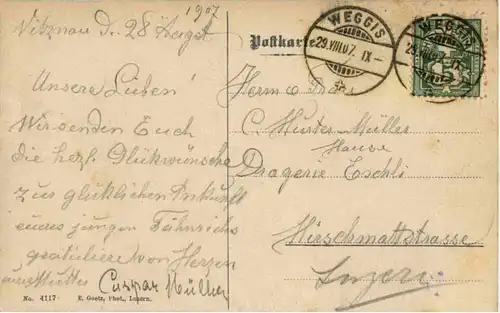 1907
Vitznau d. 28 August
Unsere Lieben!
Wir senden Euch
die herzl. Glückwünsche
zur glücklichen Ankunft
eures jungen Fähnrichs
gratuliere von Herzen
Caspar Müller
No. 4117 E. Goetz, Phot., Luzern.
Postkarte
WEGGIS
29.VIII.07. IX-
WEGGIS
Herrn &
C. Huster-Müller
Hause
Dragerie Eschli
Hirschmattstrasse
Luzern